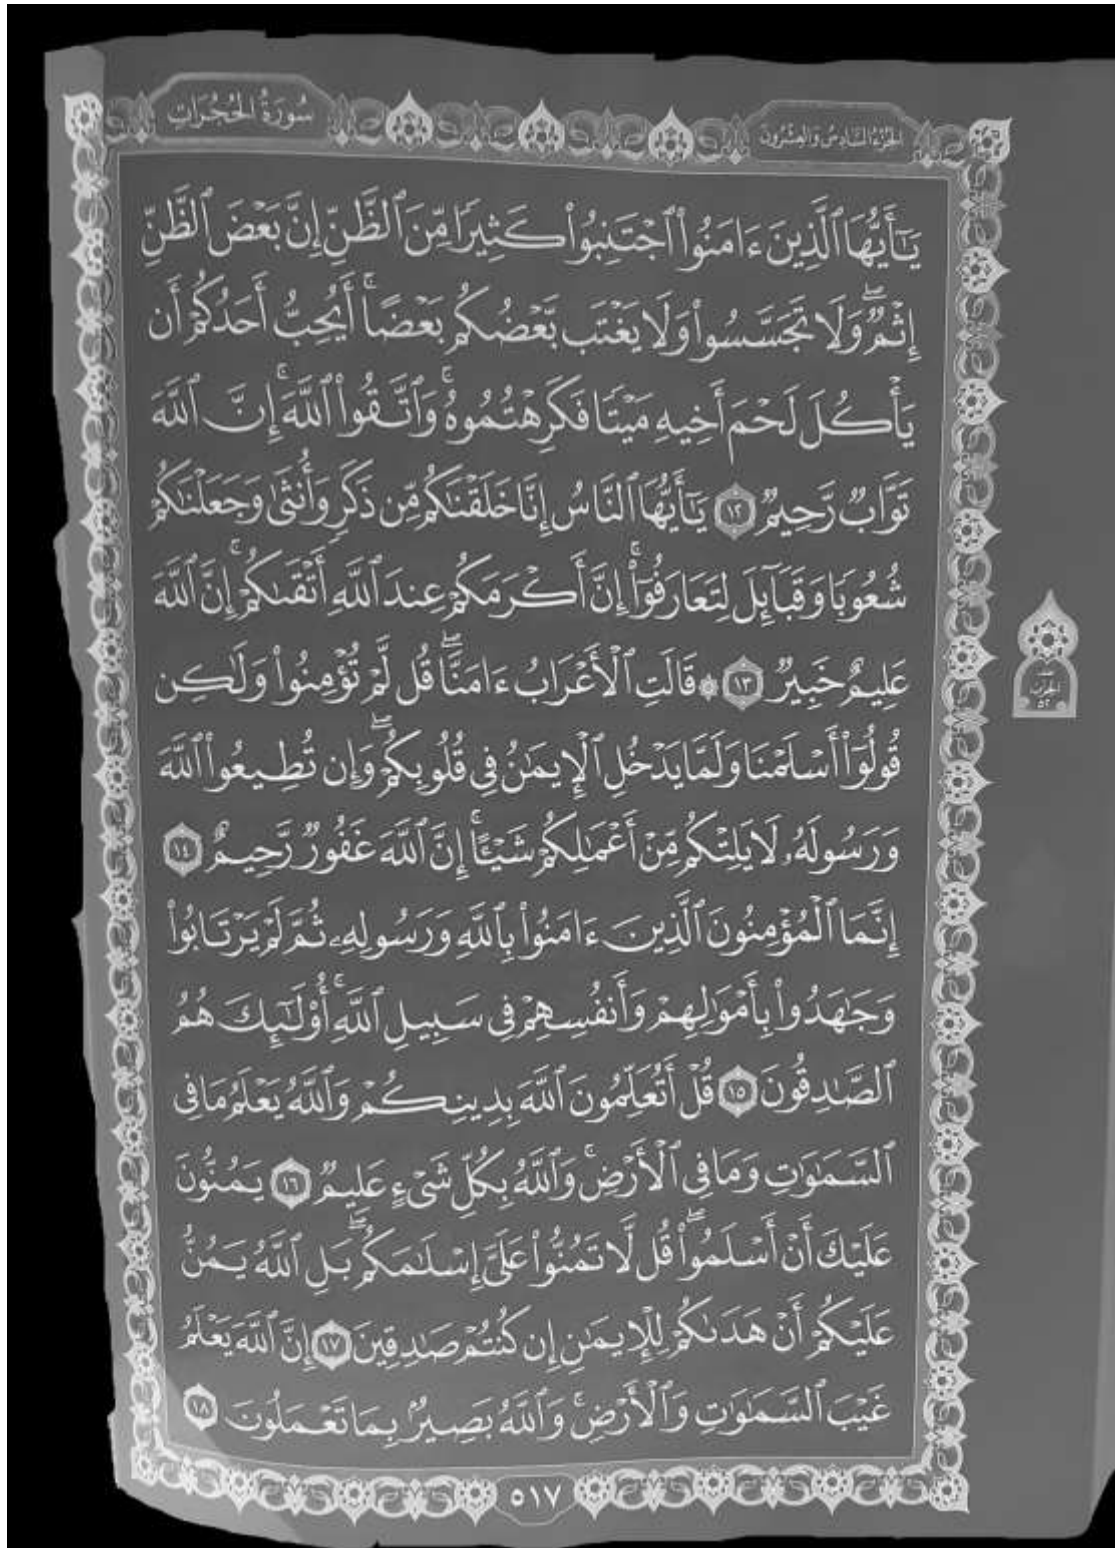 سُورَةُ الحُجُرَاتِ
الجُزْءُ السَّادِسُ وَالعِشْرُونَ
يَٰٓأَيُّهَا ٱلَّذِينَ ءَامَنُوا۟ ٱجْتَنِبُوا۟ كَثِيرًا مِّنَ ٱلظَّنِّ إِنَّ بَعْضَ ٱلظَّنِّ
إِثْمٌ ۖ وَلَا تَجَسَّسُوا۟ وَلَا يَغْتَب بَّعْضُكُم بَعْضًا ۚ أَيُحِبُّ أَحَدُكُمْ أَن
يَأْكُلَ لَحْمَ أَخِيهِ مَيْتًا فَكَرِهْتُمُوهُ ۚ وَٱتَّقُوا۟ ٱللَّهَ ۚ إِنَّ ٱللَّهَ
تَوَّابٌ رَّحِيمٌ ١٢ يَٰٓأَيُّهَا ٱلنَّاسُ إِنَّا خَلَقْنَٰكُم مِّن ذَكَرٍ وَأُنثَىٰ وَجَعَلْنَٰكُمْ
شُعُوبًا وَقَبَآئِلَ لِتَعَارَفُوٓا۟ ۚ إِنَّ أَكْرَمَكُمْ عِندَ ٱللَّهِ أَتْقَىٰكُمْ ۚ إِنَّ ٱللَّهَ
عَلِيمٌ خَبِيرٌ ١٣ ۞ قَالَتِ ٱلْأَعْرَابُ ءَامَنَّا ۖ قُل لَّمْ تُؤْمِنُوا۟ وَلَٰكِن
قُولُوٓا۟ أَسْلَمْنَا وَلَمَّا يَدْخُلِ ٱلْإِيمَٰنُ فِى قُلُوبِكُمْ ۖ وَإِن تُطِيعُوا۟ ٱللَّهَ
وَرَسُولَهُۥ لَا يَلِتْكُم مِّنْ أَعْمَٰلِكُمْ شَيْـًٔا ۚ إِنَّ ٱللَّهَ غَفُورٌ رَّحِيمٌ ١٤
إِنَّمَا ٱلْمُؤْمِنُونَ ٱلَّذِينَ ءَامَنُوا۟ بِٱللَّهِ وَرَسُولِهِۦ ثُمَّ لَمْ يَرْتَابُوا۟
وَجَٰهَدُوا۟ بِأَمْوَٰلِهِمْ وَأَنفُسِهِمْ فِى سَبِيلِ ٱللَّهِ ۚ أُو۟لَٰٓئِكَ هُمُ
ٱلصَّٰدِقُونَ ١٥ قُلْ أَتُعَلِّمُونَ ٱللَّهَ بِدِينِكُمْ وَٱللَّهُ يَعْلَمُ مَا فِى
ٱلسَّمَٰوَٰتِ وَمَا فِى ٱلْأَرْضِ ۚ وَٱللَّهُ بِكُلِّ شَىْءٍ عَلِيمٌ ١٦ يَمُنُّونَ
عَلَيْكَ أَنْ أَسْلَمُوا۟ ۖ قُل لَّا تَمُنُّوا۟ عَلَىَّ إِسْلَٰمَكُم ۖ بَلِ ٱللَّهُ يَمُنُّ
عَلَيْكُمْ أَنْ هَدَىٰكُمْ لِلْإِيمَٰنِ إِن كُنتُمْ صَٰدِقِينَ ١٧ إِنَّ ٱللَّهَ يَعْلَمُ
غَيْبَ ٱلسَّمَٰوَٰتِ وَٱلْأَرْضِ ۚ وَٱللَّهُ بَصِيرٌۢ بِمَا تَعْمَلُونَ ١٨
الحزب
٥٢
٥١٧